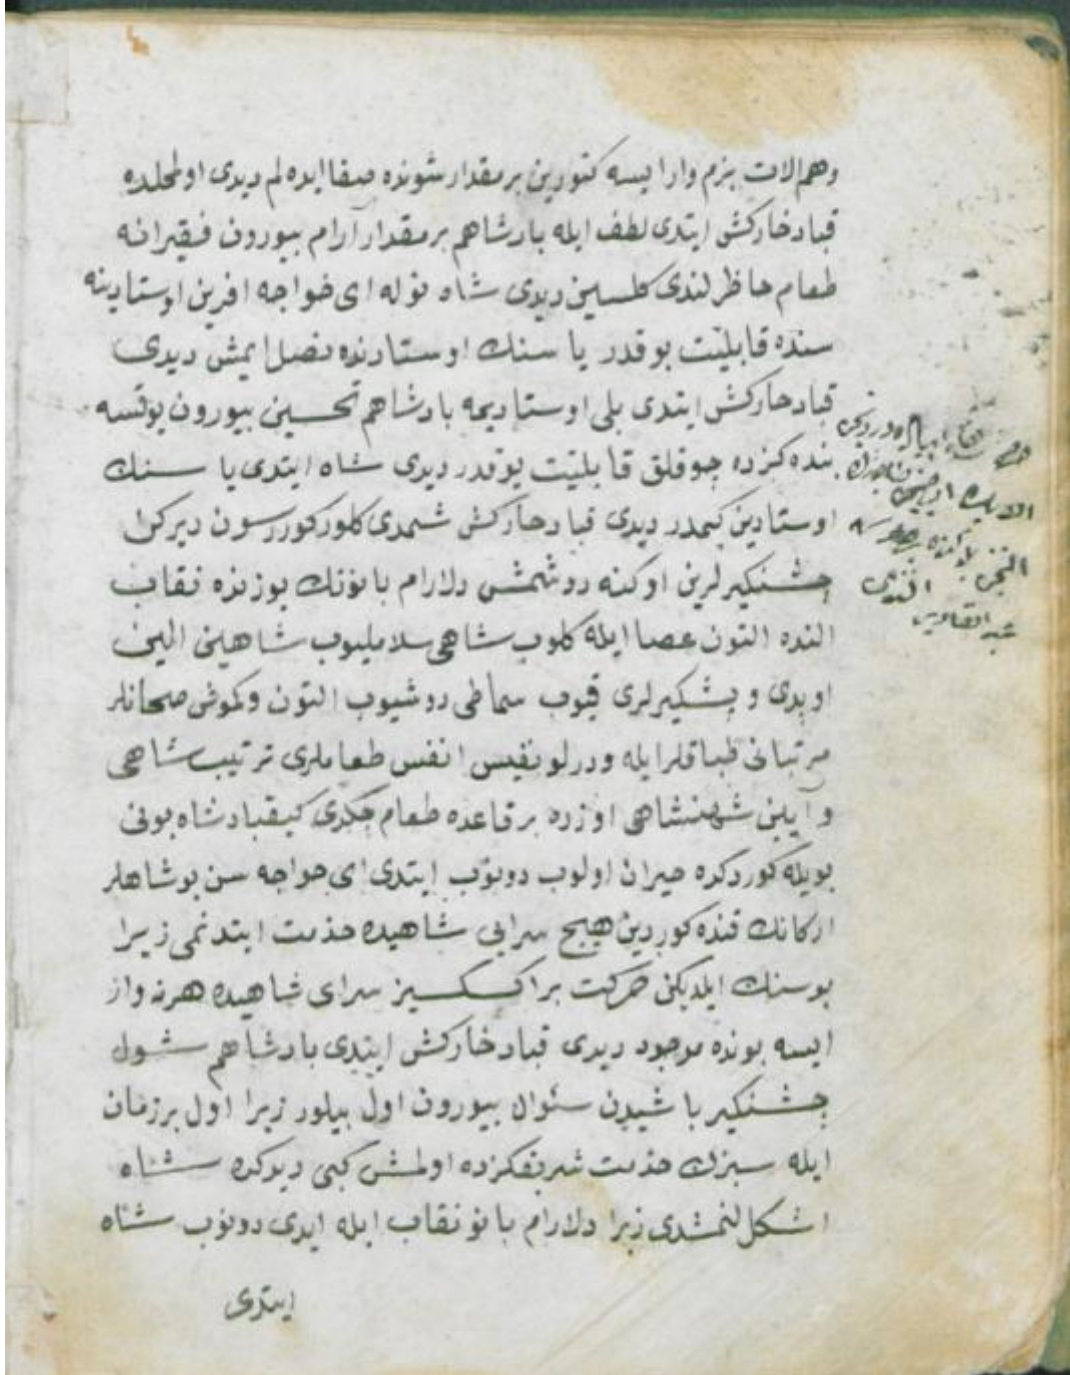 وهم الات بزم وار ايسه كتورين بر مقدار شونده صفا ايده لم ديدى اول محلده
قباد خاركش ايتدى لطف ايله پادشاهم بر مقدار آرام بيورون فقيرانه
طعام حاظرلندى كلسين ديدى شاه نوله اى خواجه افرين اوستادينه
سنده قابليت بو قدر يا سنك اوستادنده نصل ايمش ديدى
قباد خاركش ايتدى بلى اوستاديمه پادشاهم تحسين بيورون يوقسه
بنده كزده چوقلق قابليت يوقدر ديدى شاه ايتدى يا سنك
اوستادين كيمدر ديدى قباد خاركش شمدى كلور كوررسون ديركن
چشنكيرلرين اوكنه دوشمش دلارام بانونك يوزنده نقاب
النده التون عصا ايله كلوب شاهى سلامليوب شاهينى الين
اوپدى و پشكيرلرى قيوب سماطى دوشيوب التون و كموش صحانلر
مرتبانى طباقلر ايله و درلو نفيس انفس طعاملرى ترتيب شاهى
و آيين شهنشاهى اوزره بر قاعده طعام چكدى كيقباد شاه بونى
بويله كوردكده حيران اولوب دونوب ايتدى اى خواجه سن بو شاهلر
اركانك قنده كوردين هيچ سرايى شاهيده خذمت ايتدنمى زيرا
بو سنك ايلديكن حركت بر اكسكسيز سراى شاهيده هر نه وار
ايسه بونده موجود ديدى قباد خاركش ايتدى پادشاهم شول
چشنكير باشيدن سئوال بيورون اول بيلور زيرا اول بر زمان
ايله سيزك خذمت شريفكزده اولمش كبى ديدكده شاه
اشكللنمشدى زيرا دلارام بانو نقاب ايله ايدى دونوب شاه
ايتدى
افندى